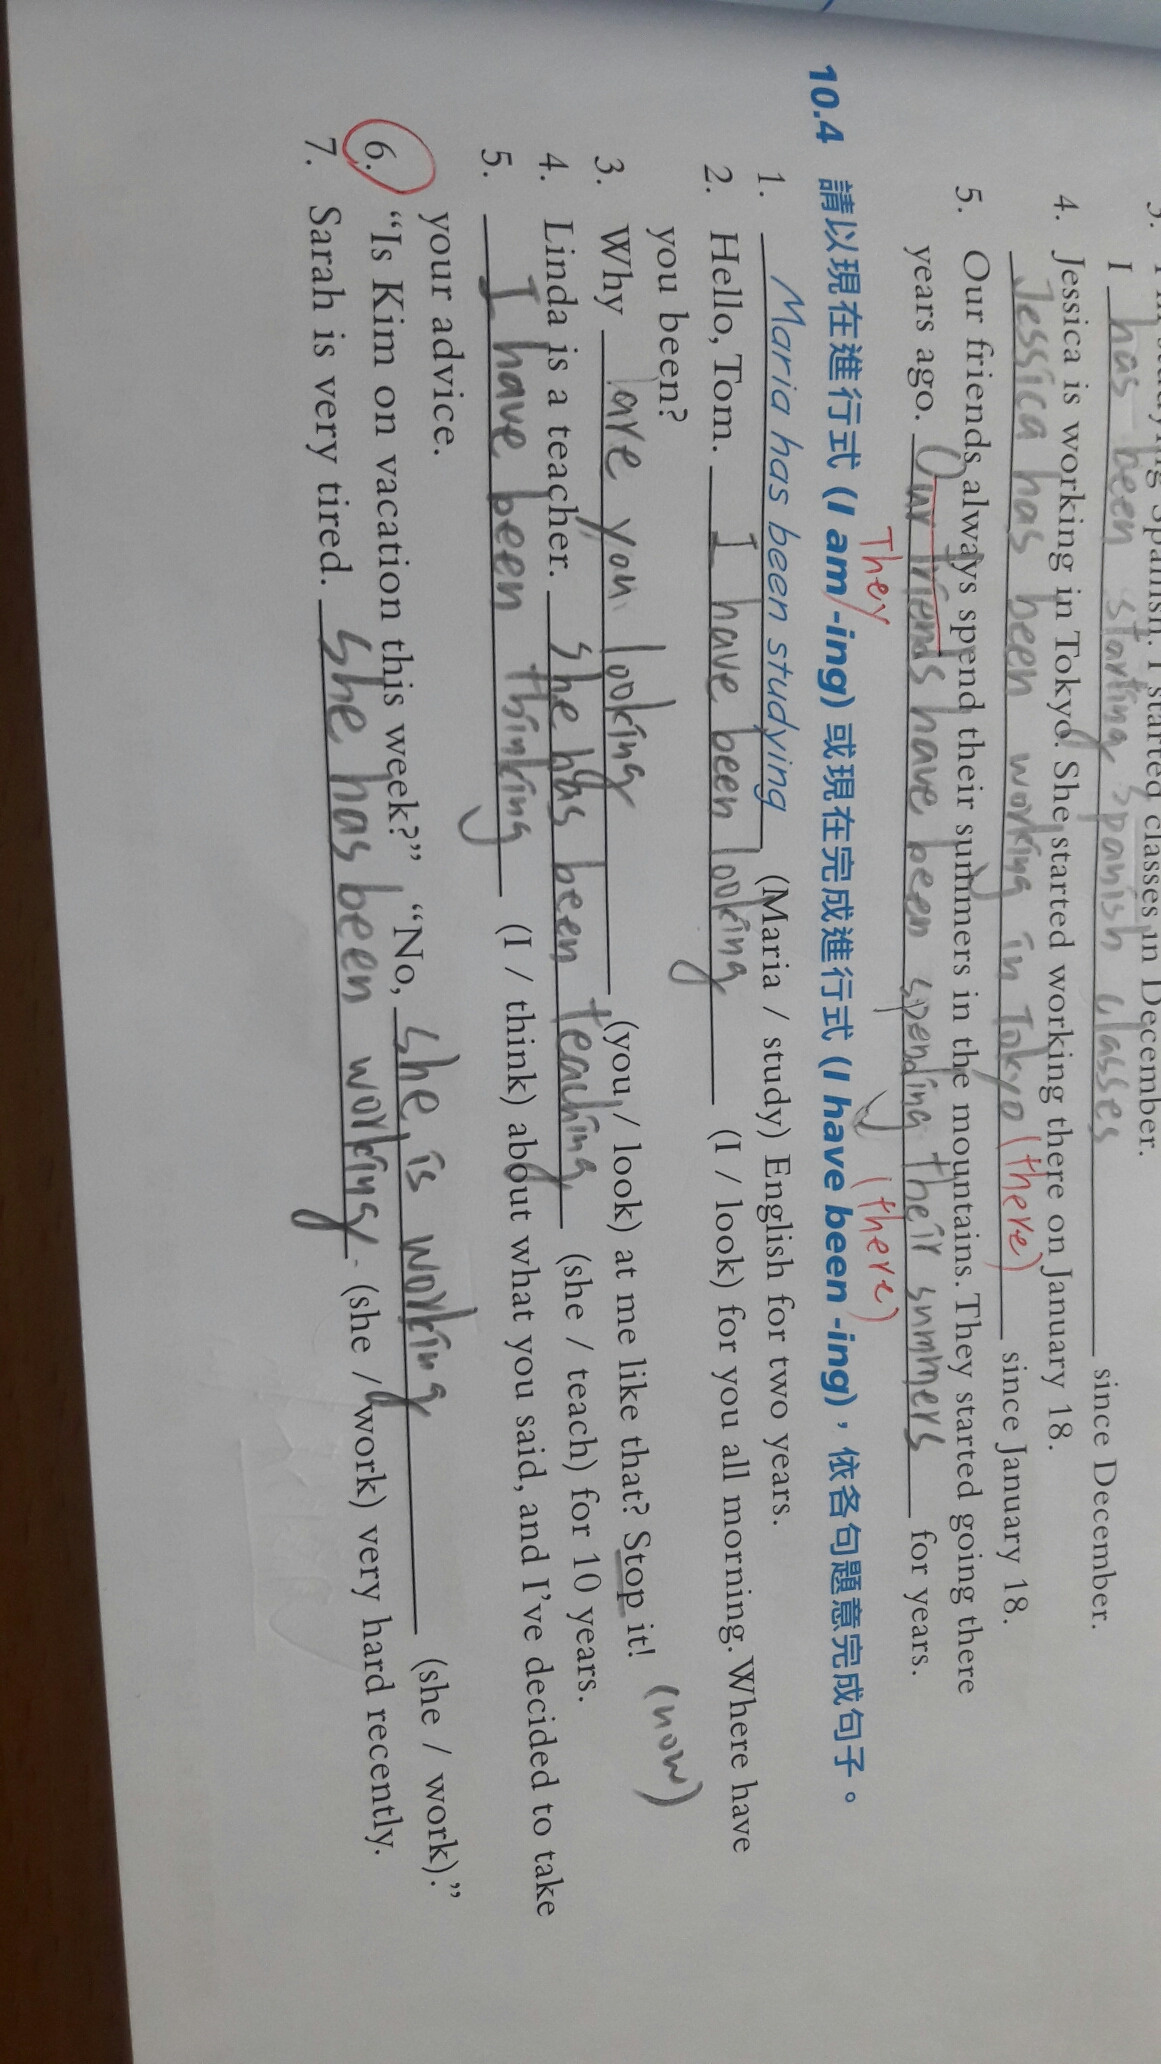 I has been starting spanish classes since December.
4. Jessica is working in Tokyo. She started working there on January 18.
Jessica has been working in Tokyo (there) since January 18.
5. Our friends always spend their summers in the mountains. They started going there
They (there)
years ago. Our friends have been spending their summers for years.
10.4 請以現在進行式 (I am -ing) 或現在完成進行式 (I have been -ing),依各句題意完成句子。
1. Maria has been studying (Maria / study) English for two years.
2. Hello, Tom. I have been looking (I / look) for you all morning. Where have
you been?
(now)
3. Why are you looking (you / look) at me like that? Stop it!
4. Linda is a teacher. she has been teaching (she / teach) for 10 years.
5. I have been thinking (I / think) about what you said, and I've decided to take
your advice.
6. “Is Kim on vacation this week?” “No, she is working (she / work).”
7. Sarah is very tired. she has been working. (she / work) very hard recently.